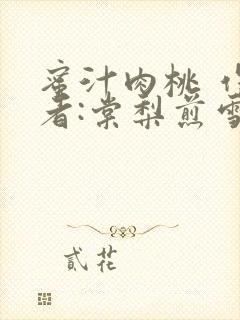 蜜汁肉桃 作
者:棠梨煎雪
貳花